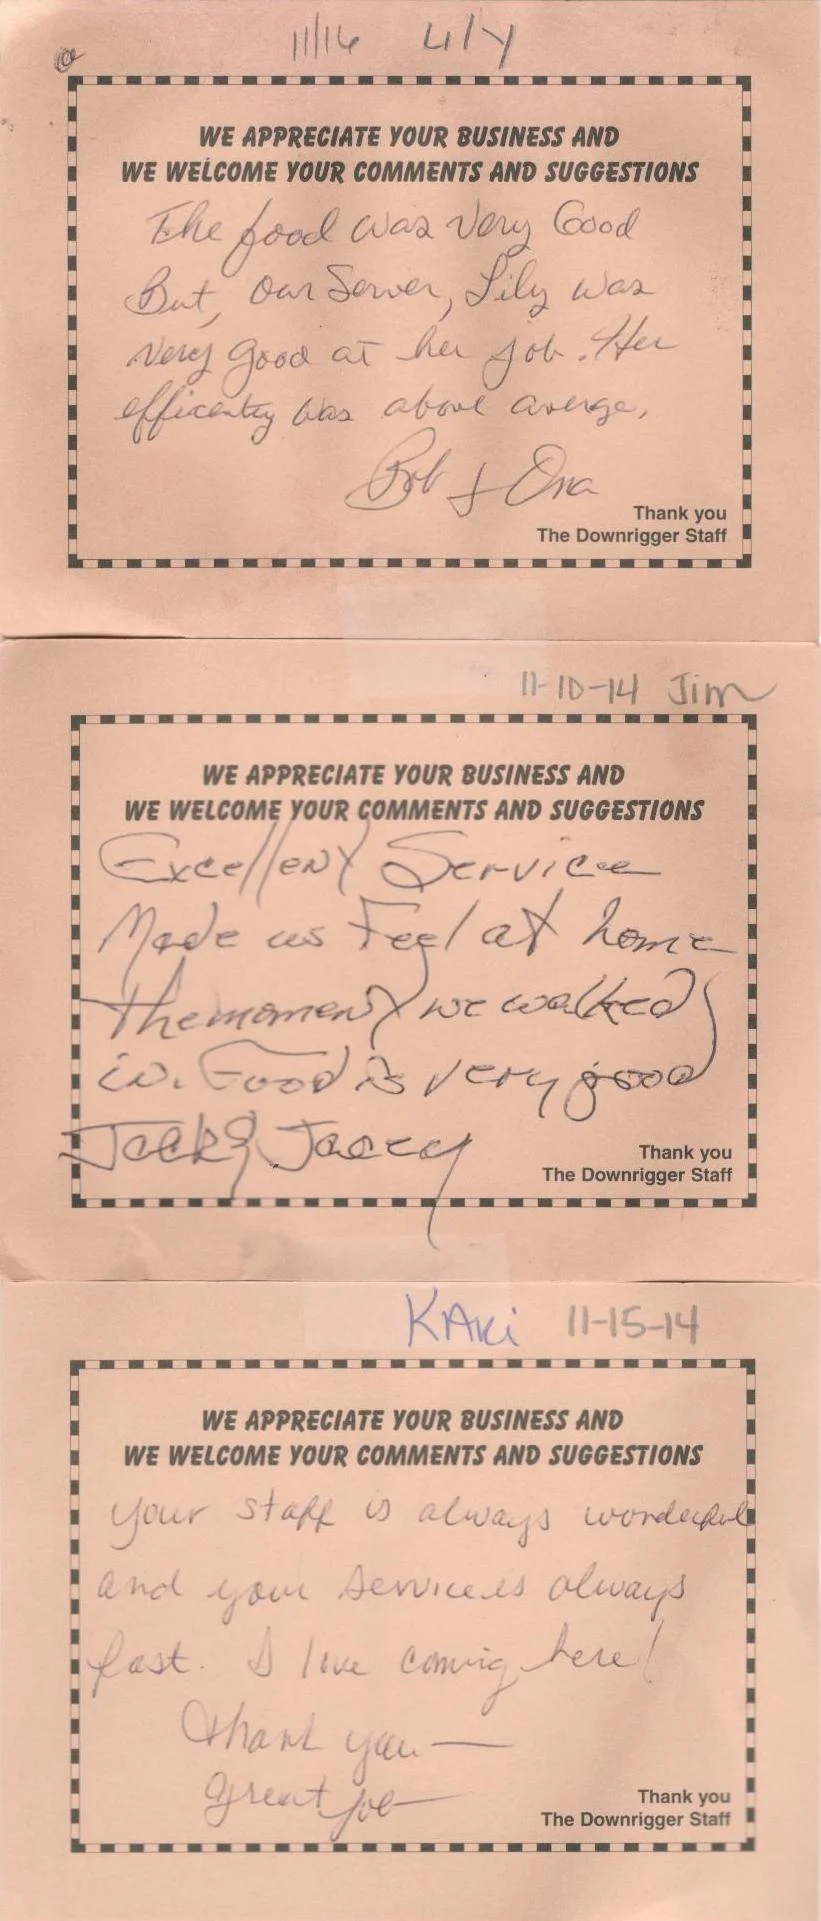 11/16 LilY
WE APPRECIATE YOUR BUSINESS AND
WE WELCOME YOUR COMMENTS AND SUGGESTIONS
The food was Very Good
But, our Server, Lily was
Very good at her job. Her
efficentcy was above averge,
Bob & Ona
Thank you
The Downrigger Staff
11-10-14 Jim
WE APPRECIATE YOUR BUSINESS AND
WE WELCOME YOUR COMMENTS AND SUGGESTIONS
Excellent Service
Made us Feel at home
the moment we walked
in. Food is very good
Jack &
Thank you
The Downrigger Staff
KARi 11-15-14
WE APPRECIATE YOUR BUSINESS AND
WE WELCOME YOUR COMMENTS AND SUGGESTIONS
your staff is always wonderful
and your service is always
fast. I love coming here!
Thank you —
great job —
Thank you
The Downrigger Staff